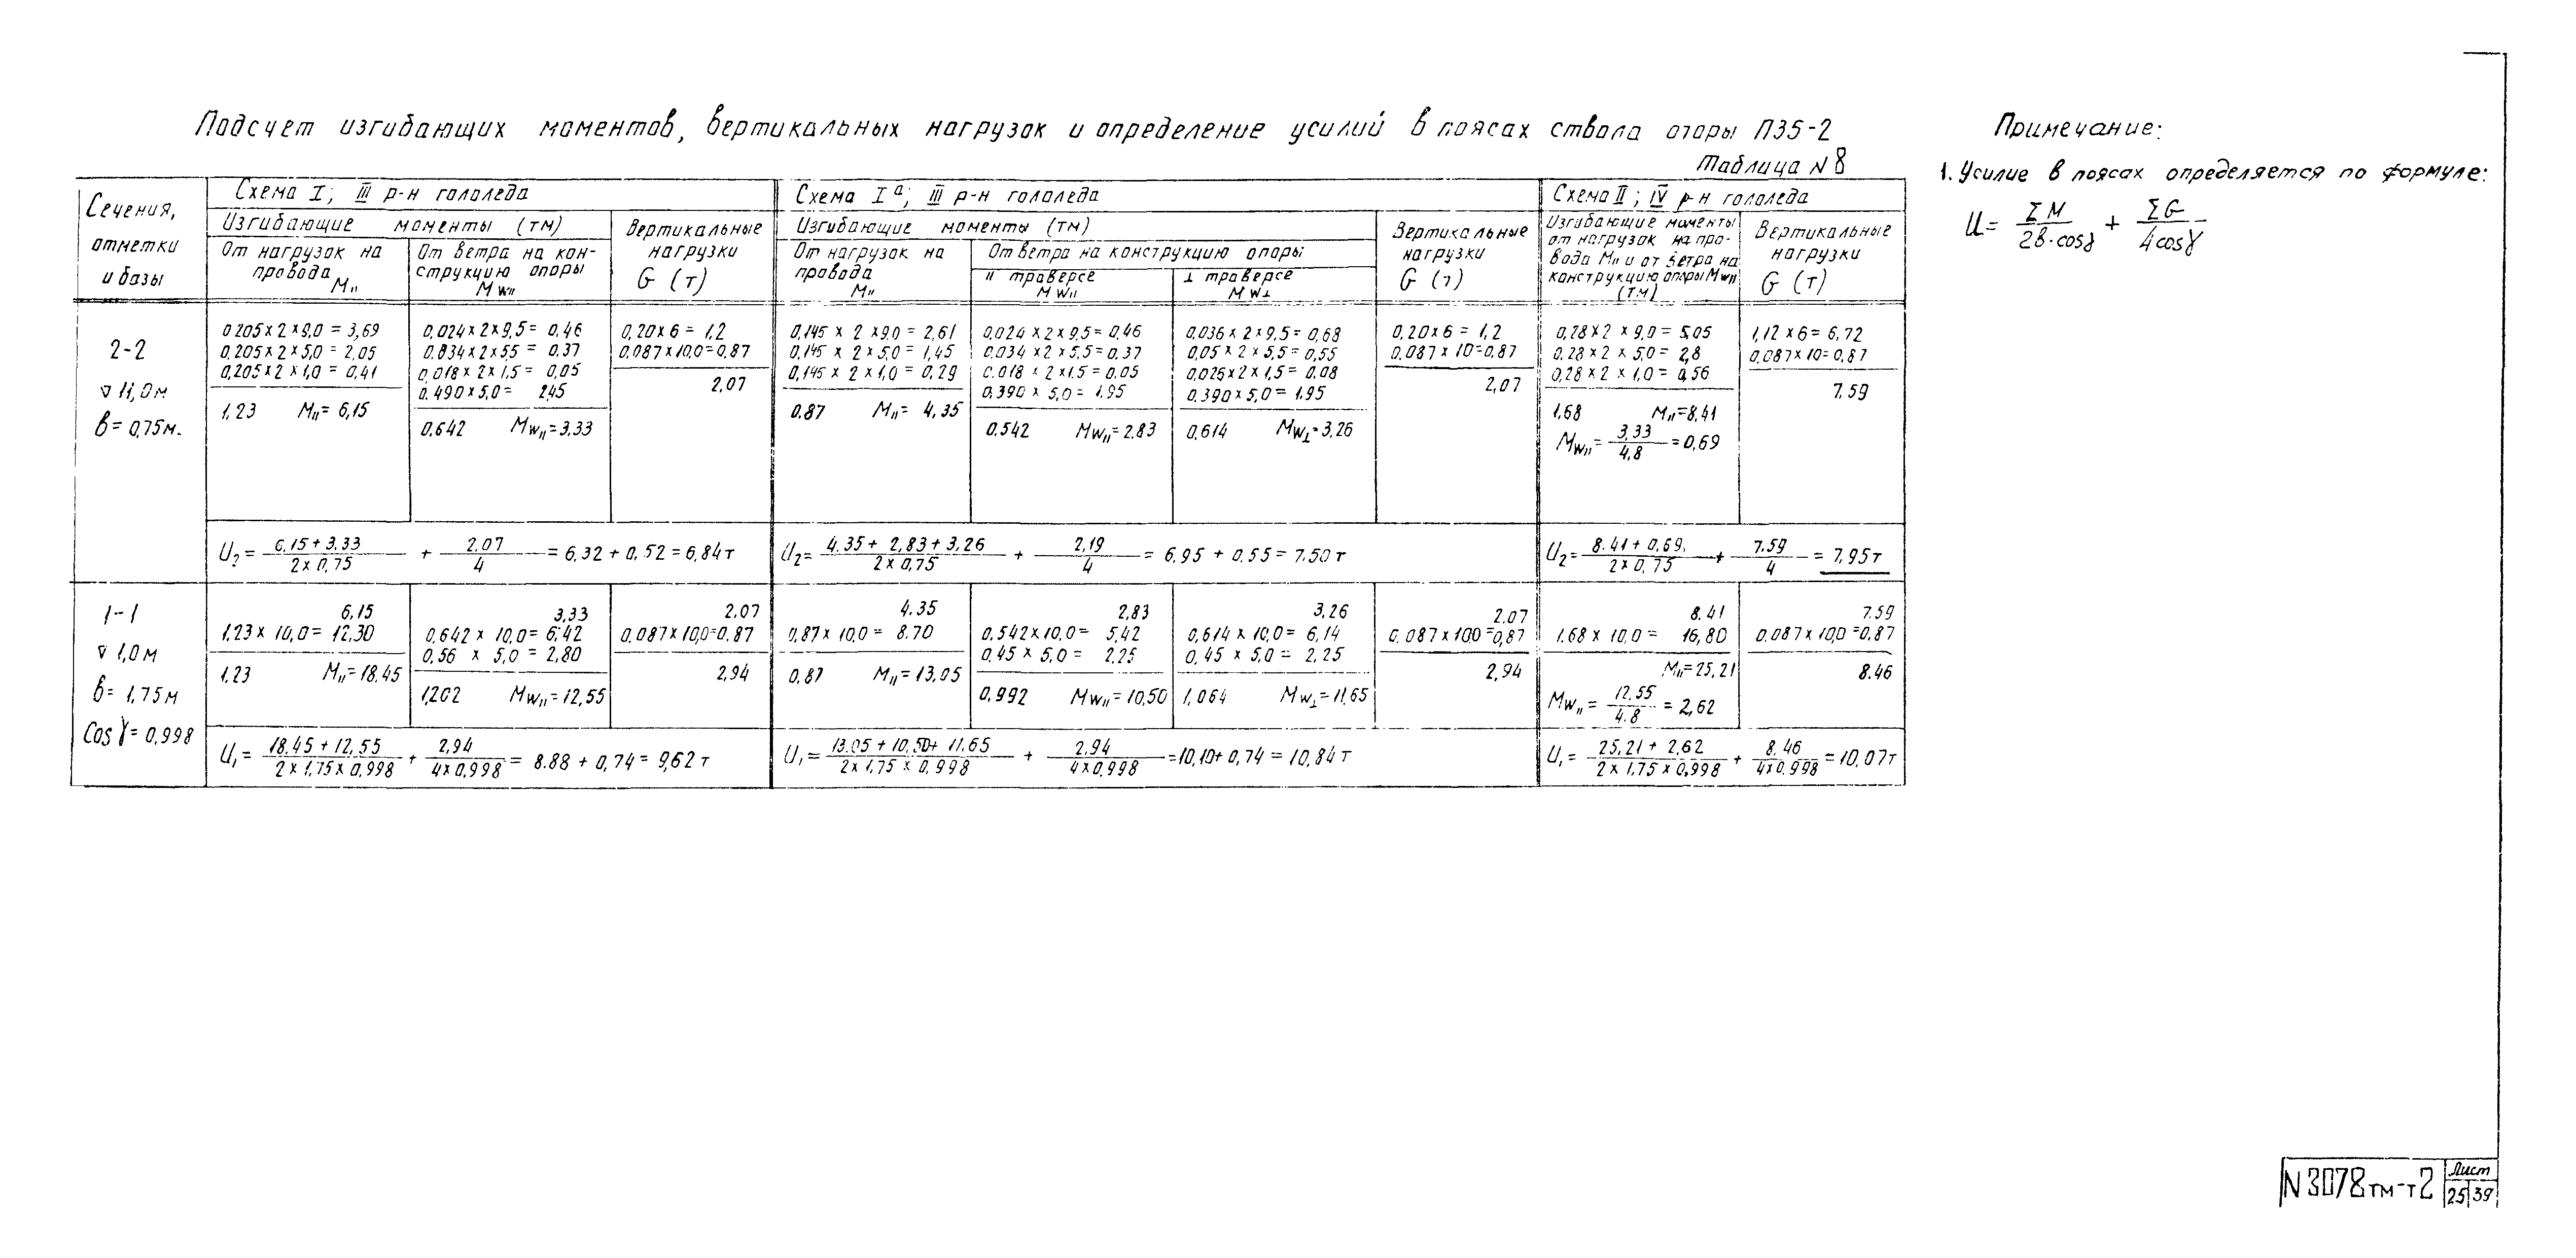 Подсчет изгибающих моментов, вертикальных нагрузок и определение усилий в поясах ствола опоры П35-2
Таблица N 8
Сечения,
отметки
и базы
Схема I; III р-н гололеда
Изгибающие моменты (тм)
От нагрузок на
провода
M॥
От ветра на кон-
струкцию опоры
M W॥
Вертикальные
нагрузки
G (т)
Схема I а; III р-н гололеда
Изгибающие моменты (тм)
От нагрузок на
провода
M॥
От ветра на конструкцию опоры
॥ траверсе
M W॥
⊥ траверсе
M W⊥
Вертикальные
нагрузки
G (т)
Схема II; IV р-н гололеда
Изгибающие моменты
от нагрузок на про-
вода M॥ и от ветра на
конструкцию опоры MW॥
(тм)
Вертикальные
нагрузки
G (т)
2-2
▽ 11,0м
в = 0,75м.
0.205 x 2 x 9,0 = 3,69
0,205 x 2 x 5,0 = 2,05
0,205 x 2 x 1,0 = 0,41
1,23 M॥ = 6,15
0,024 x 2 x 9,5 = 0,46
0.034 x 2 x 5.5 = 0.37
0,018 x 2 x 1,5 = 0,05
0.490 x 5,0 = 2,45
0,642 MW॥ = 3,33
0,20 x 6 = 1,2
0.087 x 10,0 = 0,87
2,07
0,145 x 2 x 9.0 = 2,61
0,145 x 2 x 5,0 = 1,45
0,145 x 2 x 1,0 = 0,29
0.87 M॥ = 4,35
0.024 x 2 x 9,5 = 0,46
0.034 x 2 x 5,5 = 0,37
0.018 x 2 x 1.5 = 0.05
0,390 x 5,0 = 1.95
0.542 MW॥ = 2,83
0,036 x 2 x 9,5 = 0,68
0,05 x 2 x 5,5 = 0,55
0,025 x 2 x 1,5 = 0.08
0.390 x 5.0 = 1,95
0,614 MW⊥ = 3,26
0,20 x 6 = 1,2
0.087 x 10 = 0,87
2,07
0,28 x 2 x 9,0 = 5,05
0.28 x 2 x 5,0 = 2,8
0,28 x 2 x 1,0 = 0,56
1,68 M॥ = 8,41
MW॥ = 3,33 / 4,8 = 0,69
1,12 x 6 = 6,72
0,087 x 10 = 0,87
7.59
U2 = 6,15 + 3.33 / 2 x 0,75 + 2,07 / 4 = 6,32 + 0,52 = 6,84 т
U2 = 4.35 + 2,83 + 3,26 / 2 x 0,75 + 2,19 / 4 = 6,95 + 0.55 = 7.50 т
U2 = 8.41 + 0,69 / 2 x 0,75 + 7.59 / 4 = 7,95 т
1-1
▽ 1,0 м
в = 1,75 м
Cos γ = 0,998
6,15
1,23 x 10,0 = 12,30
1,23 M॥ = 18,45
3,33
0,642 x 10,0 = 6,42
0,56 x 5,0 = 2,80
1,202 MW॥ = 12,55
2,07
0,087 x 10,0 = 0.87
2,94
4.35
0,87 x 10,0 = 8.70
0,87 M॥ = 13,05
2,83
0,542 x 10,0 = 5,42
0,45 x 5,0 = 2,25
0,992 MW॥ = 10,50
3,26
0,614 x 10,0 = 6,14
0,45 x 5,0 = 2,25
1,064 MW⊥ = 11,65
2.07
0,087 x 10,0 = 0,87
2,94
8.41
1.68 x 10,0 = 16,80
M॥ = 25,21
MW॥ = 12,55 / 4.8 = 2,62
7.59
0.087 x 10,0 = 0,87
8.46
U1 = 18.45 + 12,55 / 2 x 1,75 x 0,998 + 2,94 / 4 x 0,998 = 8.88 + 0,74 = 9,62 т
U1 = 13.05 + 10,50 + 11,65 / 2 x 1,75 x 0,998 + 2,94 / 4 x 0,998 = 10,10 + 0,74 = 10,84 т
U1 = 25,21 + 2,62 / 2 x 1,75 x 0,998 + 8.46 / 4 x 0,998 = 10,07 т
Примечание:
1. Усилие в поясах определяется по формуле:
U = ΣM / 2в·cosγ + ΣG / 4cosγ
N 3078 тм-т2
Лист
25 39